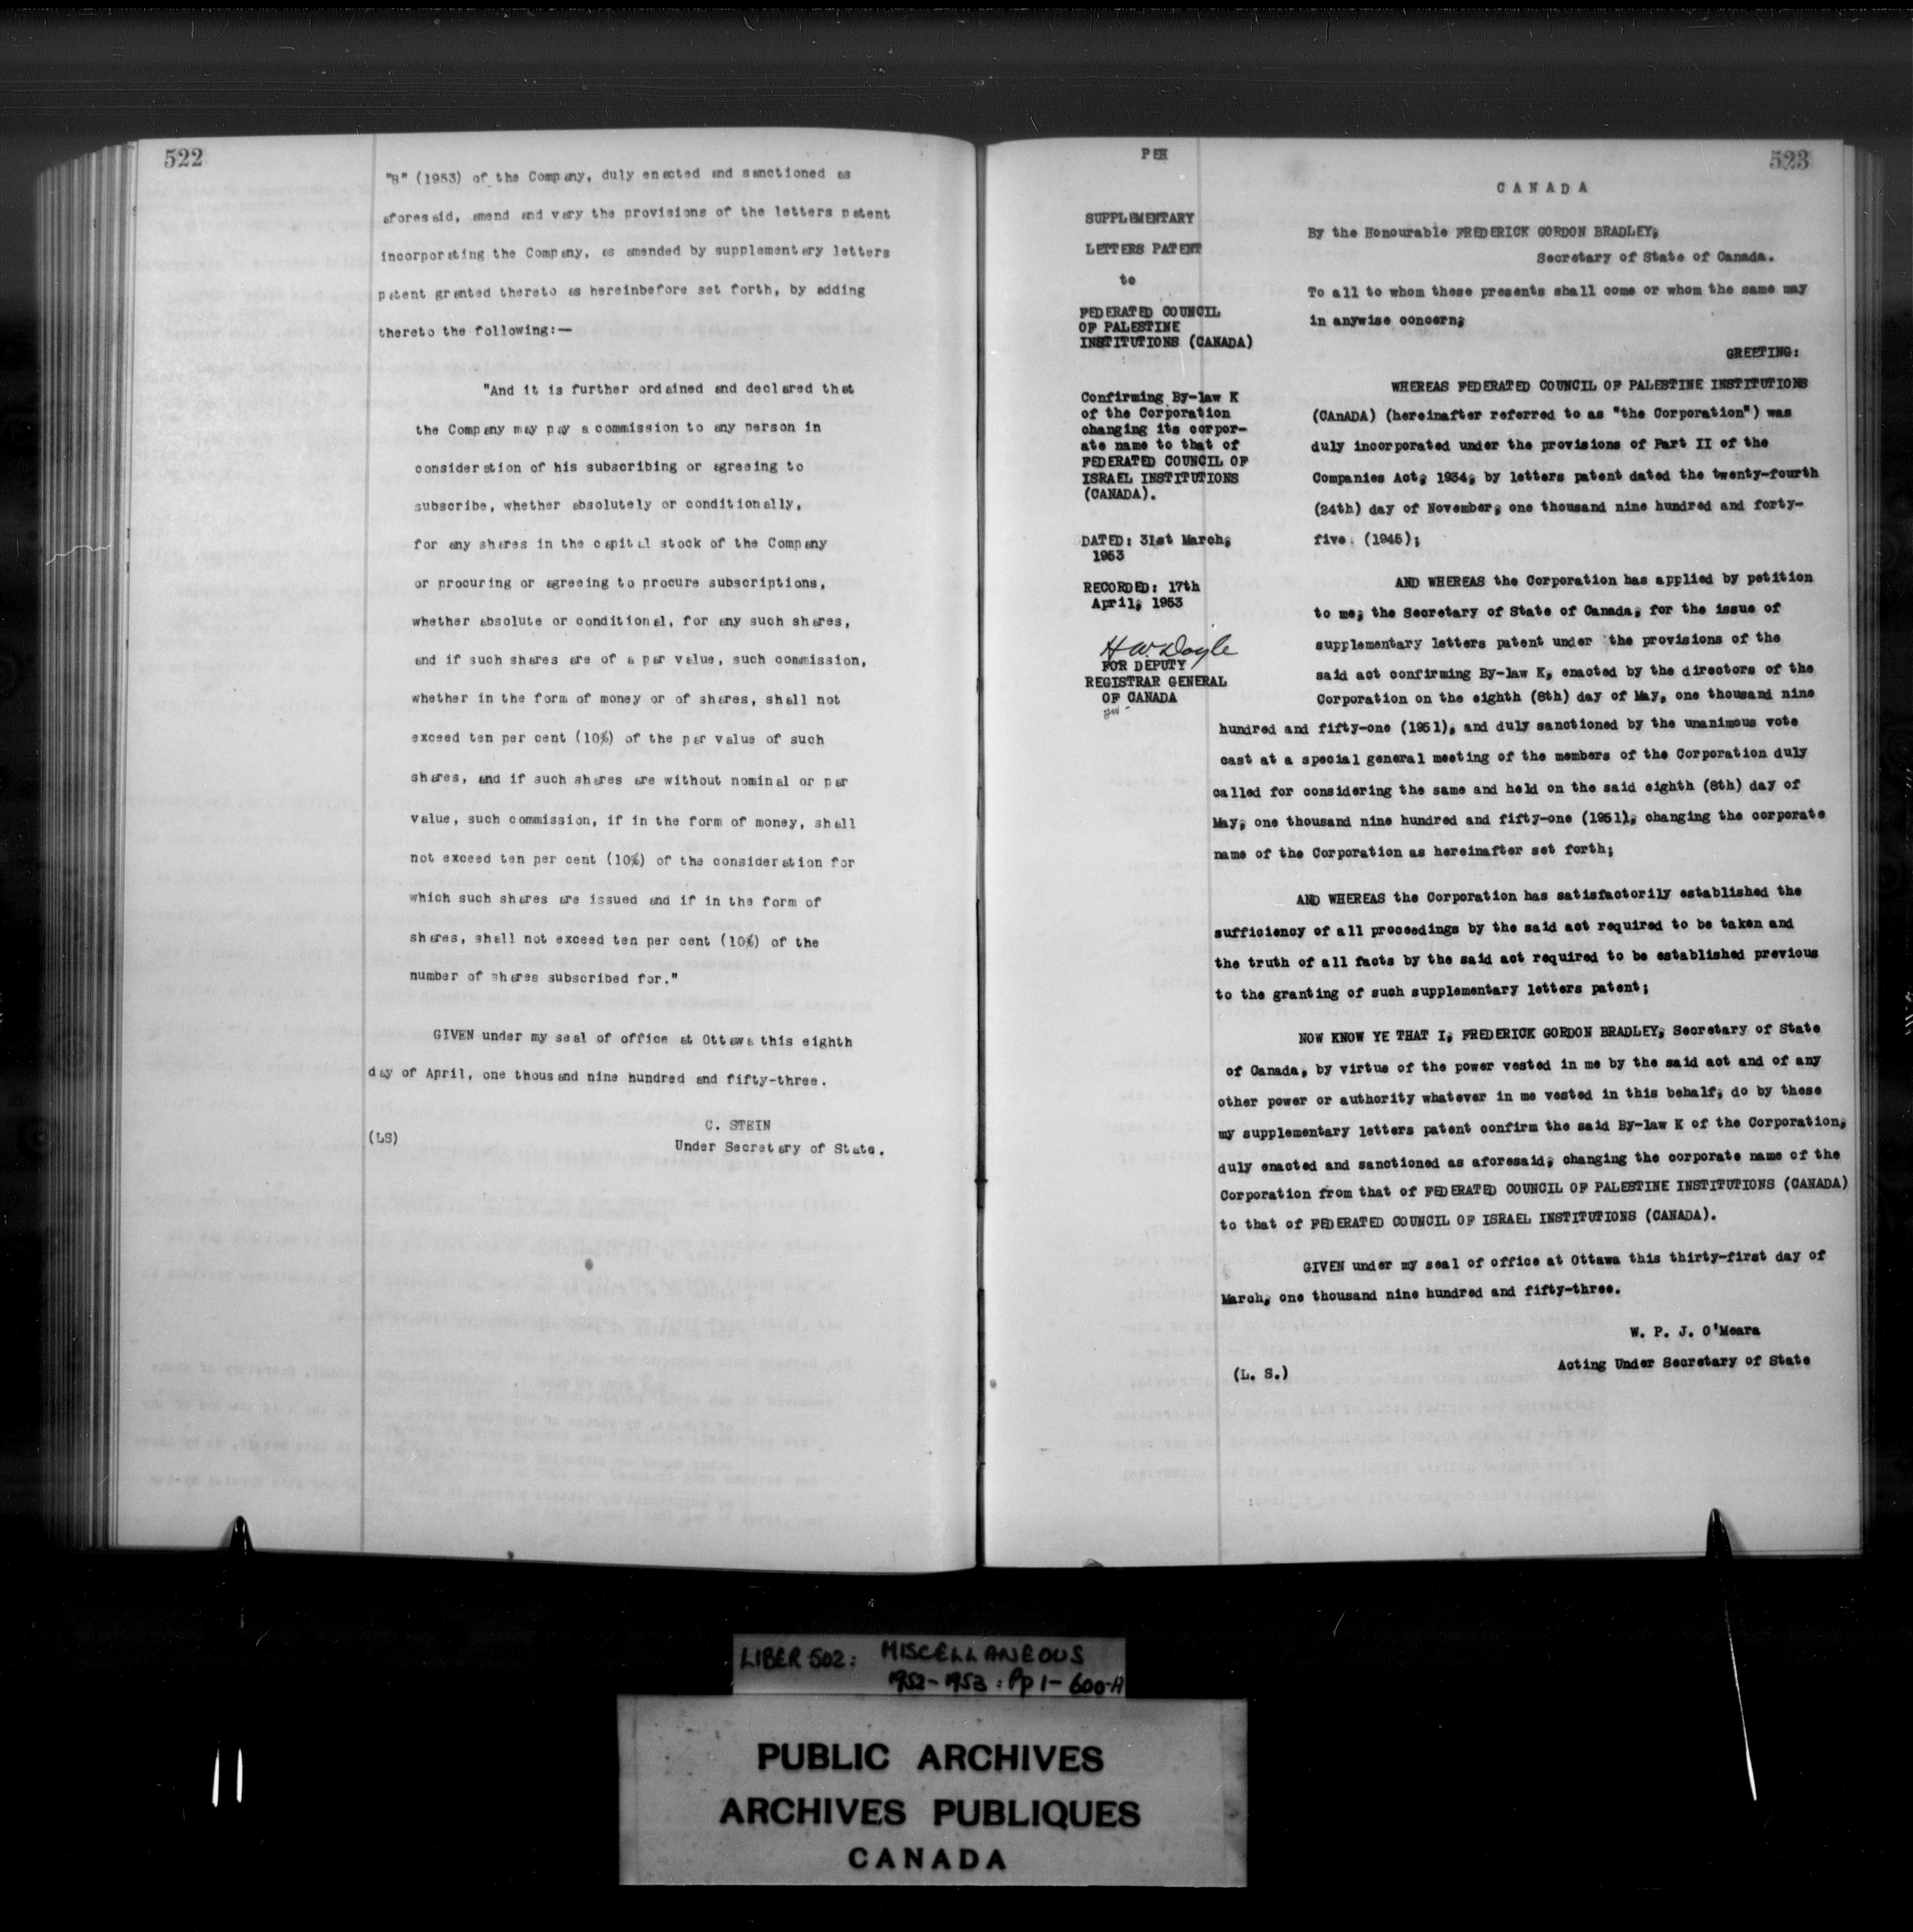 522
"B" (1953) of the Company, duly enacted and sanctioned as
aforesaid, amend and vary the provisions of the letters patent
incorporating the Company, as amended by supplementary letters
patent granted thereto as hereinbefore set forth, by adding
thereto the following:—
"And it is further ordained and declared that
the Company may pay a commission to any person in
consideration of his subscribing or agreeing to
subscribe, whether absolutely or conditionally,
for any shares in the capital stock of the Company
or procuring or agreeing to procure subscriptions,
whether absolute or conditional, for any such shares,
and if such shares are of a par value, such commission,
whether in the form of money or of shares, shall not
exceed ten per cent (10%) of the par value of such
shares, and if such shares are without nominal or par
value, such commission, if in the form of money, shall
not exceed ten per cent (10%) of the consideration for
which such shares are issued and if in the form of
shares, shall not exceed ten per cent (10%) of the
number of shares subscribed for."
GIVEN under my seal of office at Ottawa this eighth
day of April, one thousand nine hundred and fifty-three.
C. STEIN
(LS)
Under Secretary of State.
PEH
523
SUPPLEMENTARY
LETTERS PATENT
to
FEDERATED COUNCIL
OF PALESTINE
INSTITUTIONS (CANADA)
Confirming By-law K
of the Corporation
changing its corpor-
ate name to that of
FEDERATED COUNCIL OF
ISRAEL INSTITUTIONS
(CANADA).
DATED: 31st March,
1953
RECORDED: 17th
April, 1953
H W. Doyle
FOR DEPUTY
REGISTRAR GENERAL
OF CANADA
CANADA
By the Honourable FREDERICK GORDON BRADLEY,
Secretary of State of Canada.
To all to whom these presents shall come or whom the same may
in anywise concern;
GREETING:
WHEREAS FEDERATED COUNCIL OF PALESTINE INSTITUTIONS
(CAnADA) (hereinafter referred to as "the Corporation") was
duly incorporated under the provisions of Part II of the
Companies Act, 1934, by letters patent dated the twenty-fourth
(24th) day of November, one thousand nine hundred and forty-
five (1945);
AND WHEREAS the Corporation has applied by petition
to me, the Secretary of State of Canada, for the issue of
supplementary letters patent under the provisions of the
said act confirming By-law K, enacted by the directors of the
Corporation on the eighth (8th) day of May, one thousand nine
hundred and fifty-one (1951), and duly sanctioned by the unanimous vote
cast at a special general meeting of the members of the Corporation duly
called for considering the same and held on the said eighth (8th) day of
May, one thousand nine hundred and fifty-one (1951), changing the corporate
name of the Corporation as hereinafter set forth;
AND WHEREAS the Corporation has satisfactorily established the
sufficiency of all proceedings by the said act required to be taken and
the truth of all facts by the said act required to be established previous
to the granting of such supplementary letters patent;
NOW KNOW YE THAT I, FREDERICK GORDON BRADLEY, Secretary of State
of Canada, by virtue of the power vested in me by the said act and of any
other power or authority whatever in me vested in this behalf, do by these
my supplementary letters patent confirm the said By-law K of the Corporation,
duly enacted and sanctioned as aforesaid, changing the corporate name of the
Corporation from that of FEDERATED COUNCIL OF PALESTINE INSTITUTIONS (CANADA)
to that of FEDERATED COUNCIL OF ISRAEL INSTITUTIONS (CANADA).
GIVEN under my seal of office at Ottawa this thirty-first day of
March, one thousand nine hundred and fifty-three.
W. P. J. O'Meara
(L. S.)
Acting Under Secretary of State
LIBER 502: MISCELLANEOUS
1952-1953: Pp 1-600-A
PUBLIC ARCHIVES
ARCHIVES PUBLIQUES
CANADA